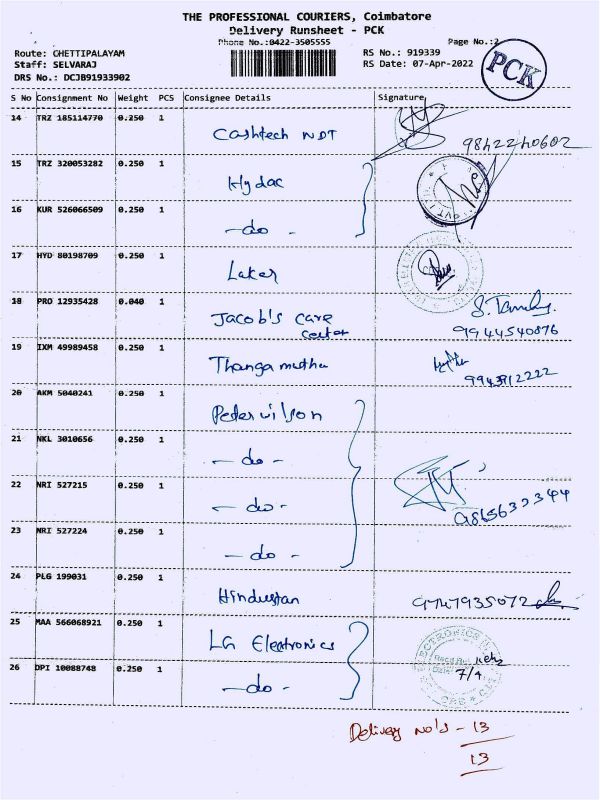 THE PROFESSIONAL COURIERS, Coimbatore
Delivery Runsheet - PCK
Phone No.:0422-3505555
Page No.:2
Route: CHETTIPALAYAM
RS No.: 919339
Staff: SELVARAJ
RS Date: 07-Apr-2022
DRS No.: DCJB91933902
PCK
S No Consignment No Weight PCS Consignee Details Signature
14 TRZ 185114770 0.250 1 Cashtech NDT 9842240602
15 TRZ 320053282 0.250 1 Hydac
16 KUR 526066509 0.250 1 -do-
17 HYD 80198709 0.250 1 Laker
18 PRO 12935428 0.040 1 Jacob's care
center
9944540876
19 IXM 49989458 0.250 1 Thangamuthu
20 AKM 5040241 0.250 1 Peter wilson
21 NKL 3010656 0.250 1 -do-
22 NRI 527215 0.250 1 -do-
23 NRI 527224 0.250 1 -do-
24 PLG 199031 0.250 1 Hindustan 9747935072
25 MAA 566068921 0.250 1 LG Electronics
26 DPI 10088748 0.250 1 -do- 7/4
Delivery no's - 13
13